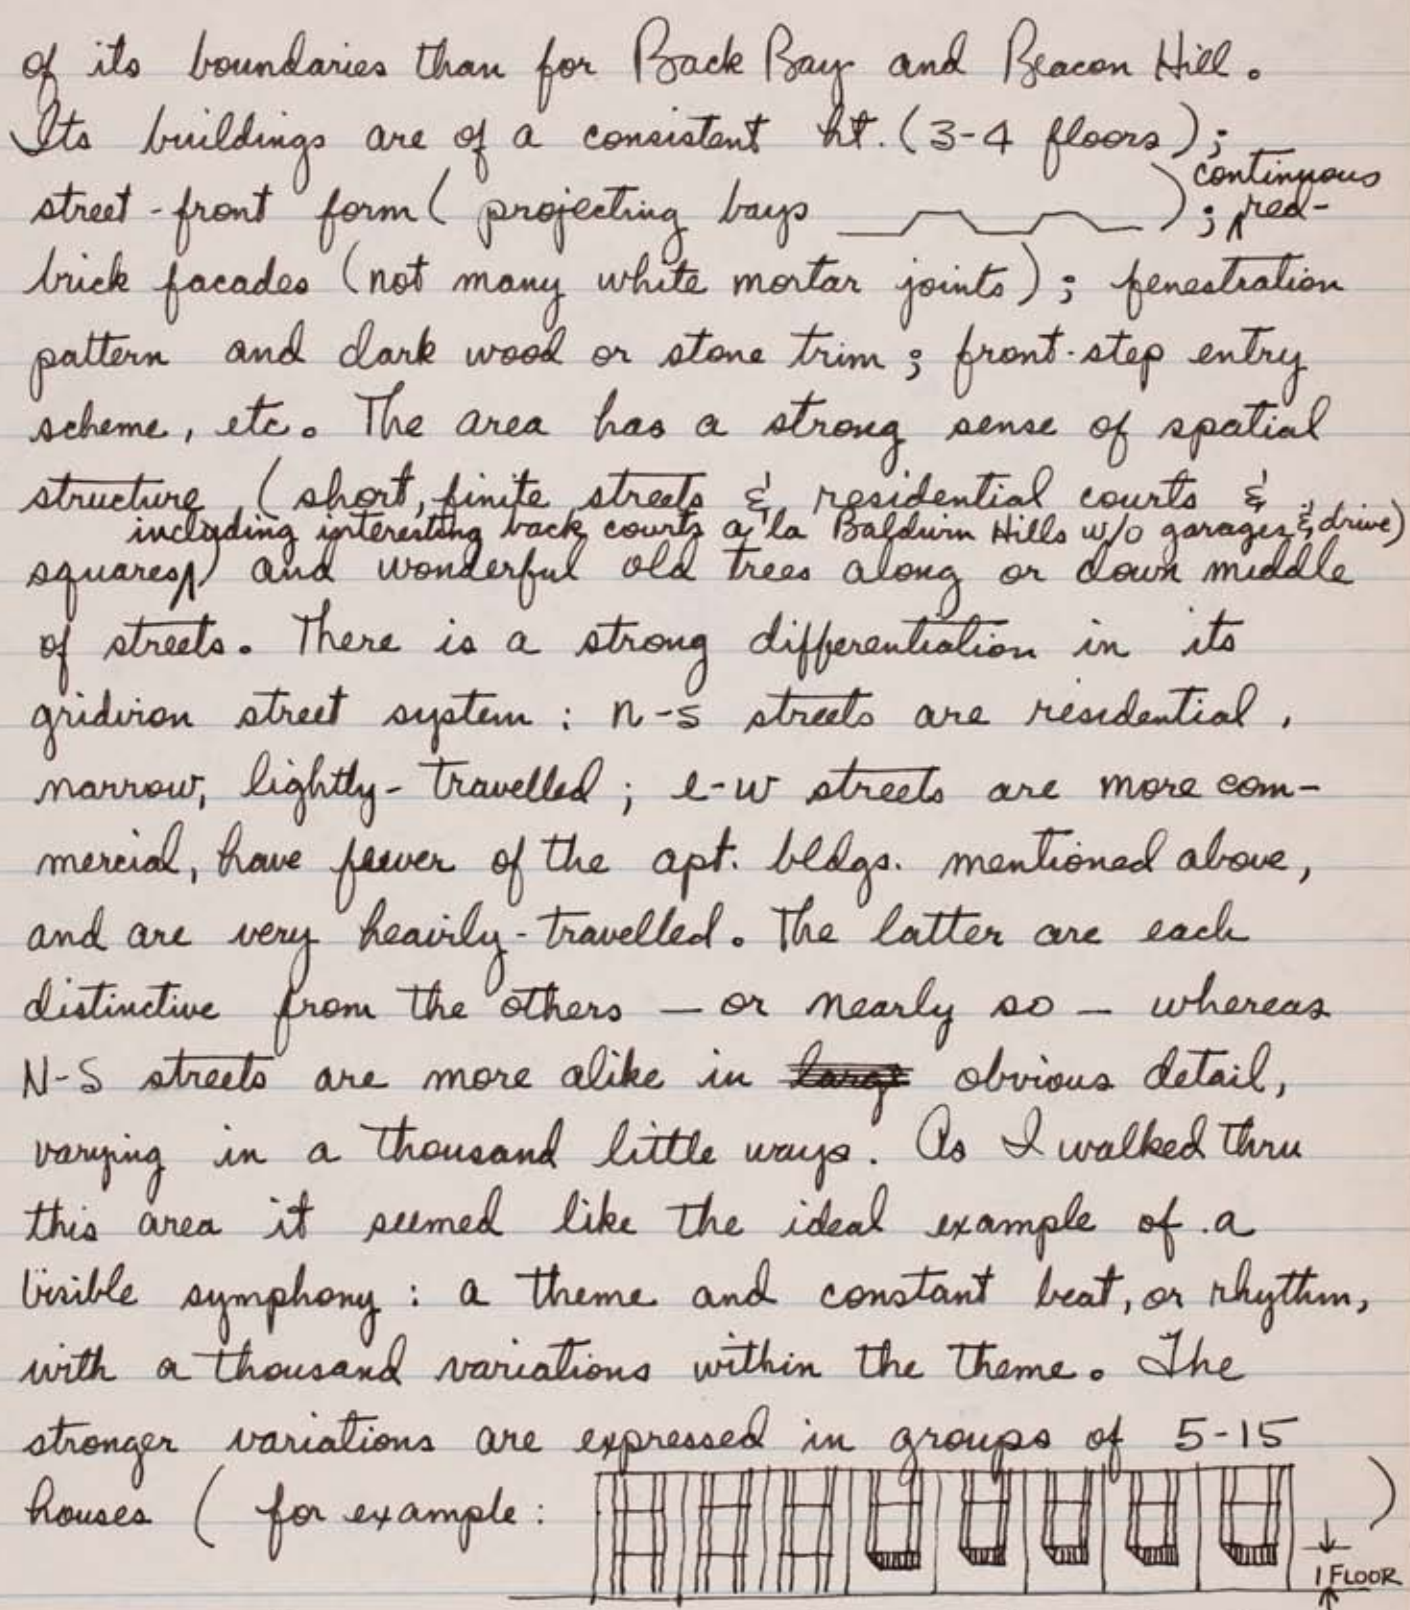 of its boundaries than for Back Bay and Beacon Hill.
Its buildings are of a consistent ht. (3-4 floors);
street-front form (projecting bays ); continuous red-
brick facades (not many white mortar joints); fenestration
pattern and dark wood or stone trim; front-step entry
scheme, etc. The area has a strong sense of spatial
structure (short, finite streets & residential courts &
including interesting back courts a'la Baldwin Hills w/o garages & drive)
squares) and wonderful old trees along or down middle
of streets. There is a strong differentiation in its
gridiron street system: n-s streets are residential,
narrow, lightly-travelled; e-w streets are more com-
mercial, have fewer of the apt. bldgs. mentioned above,
and are very heavily-travelled. The latter are each
distinctive from the others — or nearly so — whereas
N-S streets are more alike in large obvious detail,
varying in a thousand little ways. As I walked thru
this area it seemed like the ideal example of a
visible symphony: a theme and constant beat, or rhythm,
with a thousand variations within the theme. The
stronger variations are expressed in groups of 5-15
houses (for example: )
1 FLOOR